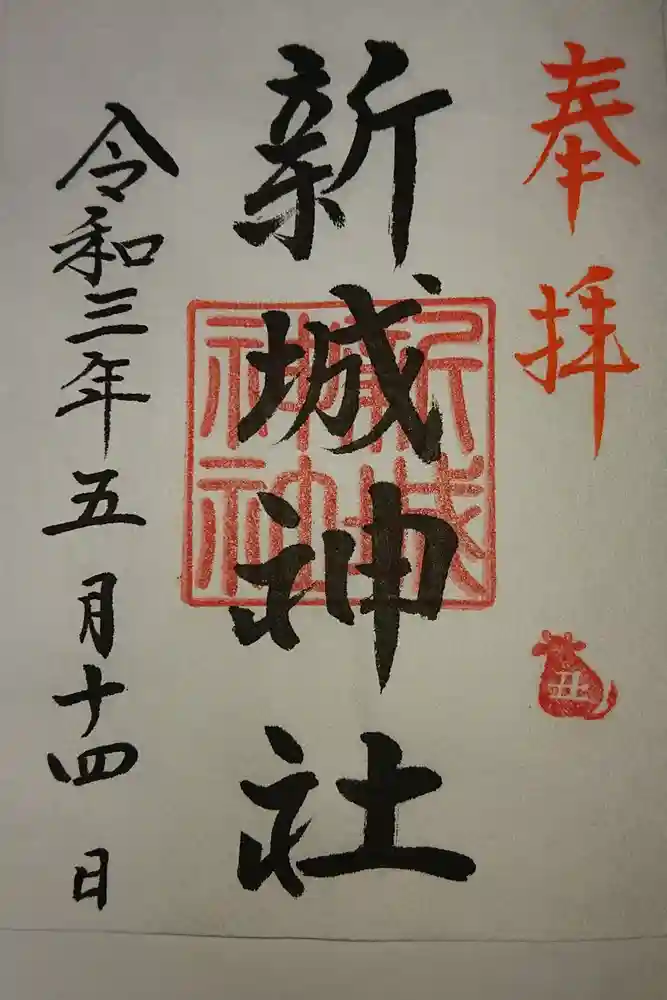 奉拝
新城神社
新城神社
丑
令和三年五月十四日